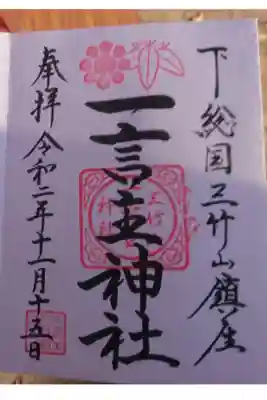 下総国三竹山鎮座
一言主神社
奉拝 令和二年十二月十五日